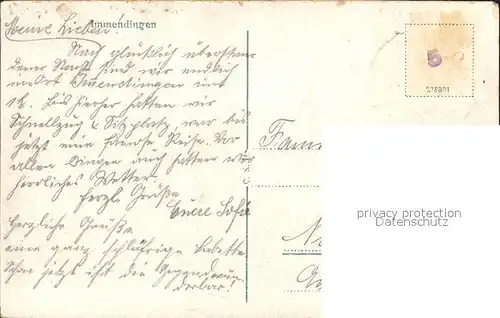 Immendingen
Meine Lieben!
Nach glücklich überstan
dener Nacht sind wir endlich
im Ort Immendingen um
1h. Bis hierher hatten wir
Schnellzug & Sitzplatz, war bis
jetzt eine Reise. Vor
allen Dingen auch hatten wir
herrliches Wetter.
Herzl. Grüße
Euere Sofie
herzliche Grüße
eine ganz schläfrige Babette.
Schon jetzt ist die Gegend wun
derbar!
Fam
privacy protection
Datenschutz